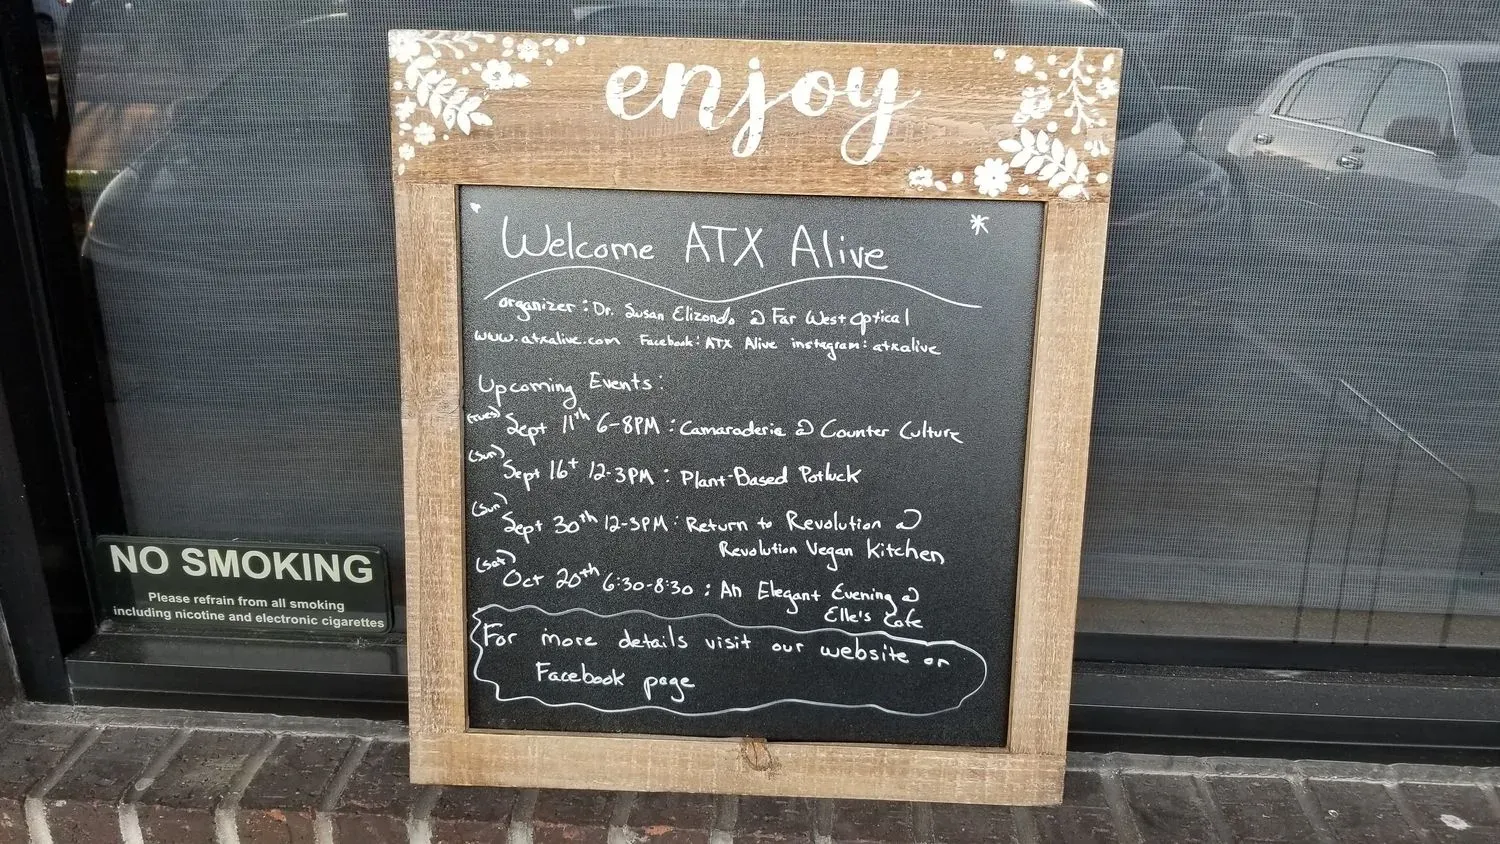 enjoy
Welcome ATX Alive
organizer: Dr. Susan Elizondo @ Far West Optical
www.atxalive.com Facebook: ATX Alive instagram: atxalive
Upcoming Events:
(Tues) Sept 11th 6-8PM: Camaraderie @ Counter Culture
(Sun) Sept 16t 12-3PM: Plant-Based Potluck
(Sun) Sept 30th 12-3PM: Return to Revolution @
Revolution Vegan Kitchen
(Sat) Oct 20th 6:30-8:30: An Elegant Evening @
Elle's Cafe
For more details visit our website or
Facebook page
NO SMOKING
Please refrain from all smoking
including nicotine and electronic cigarettes